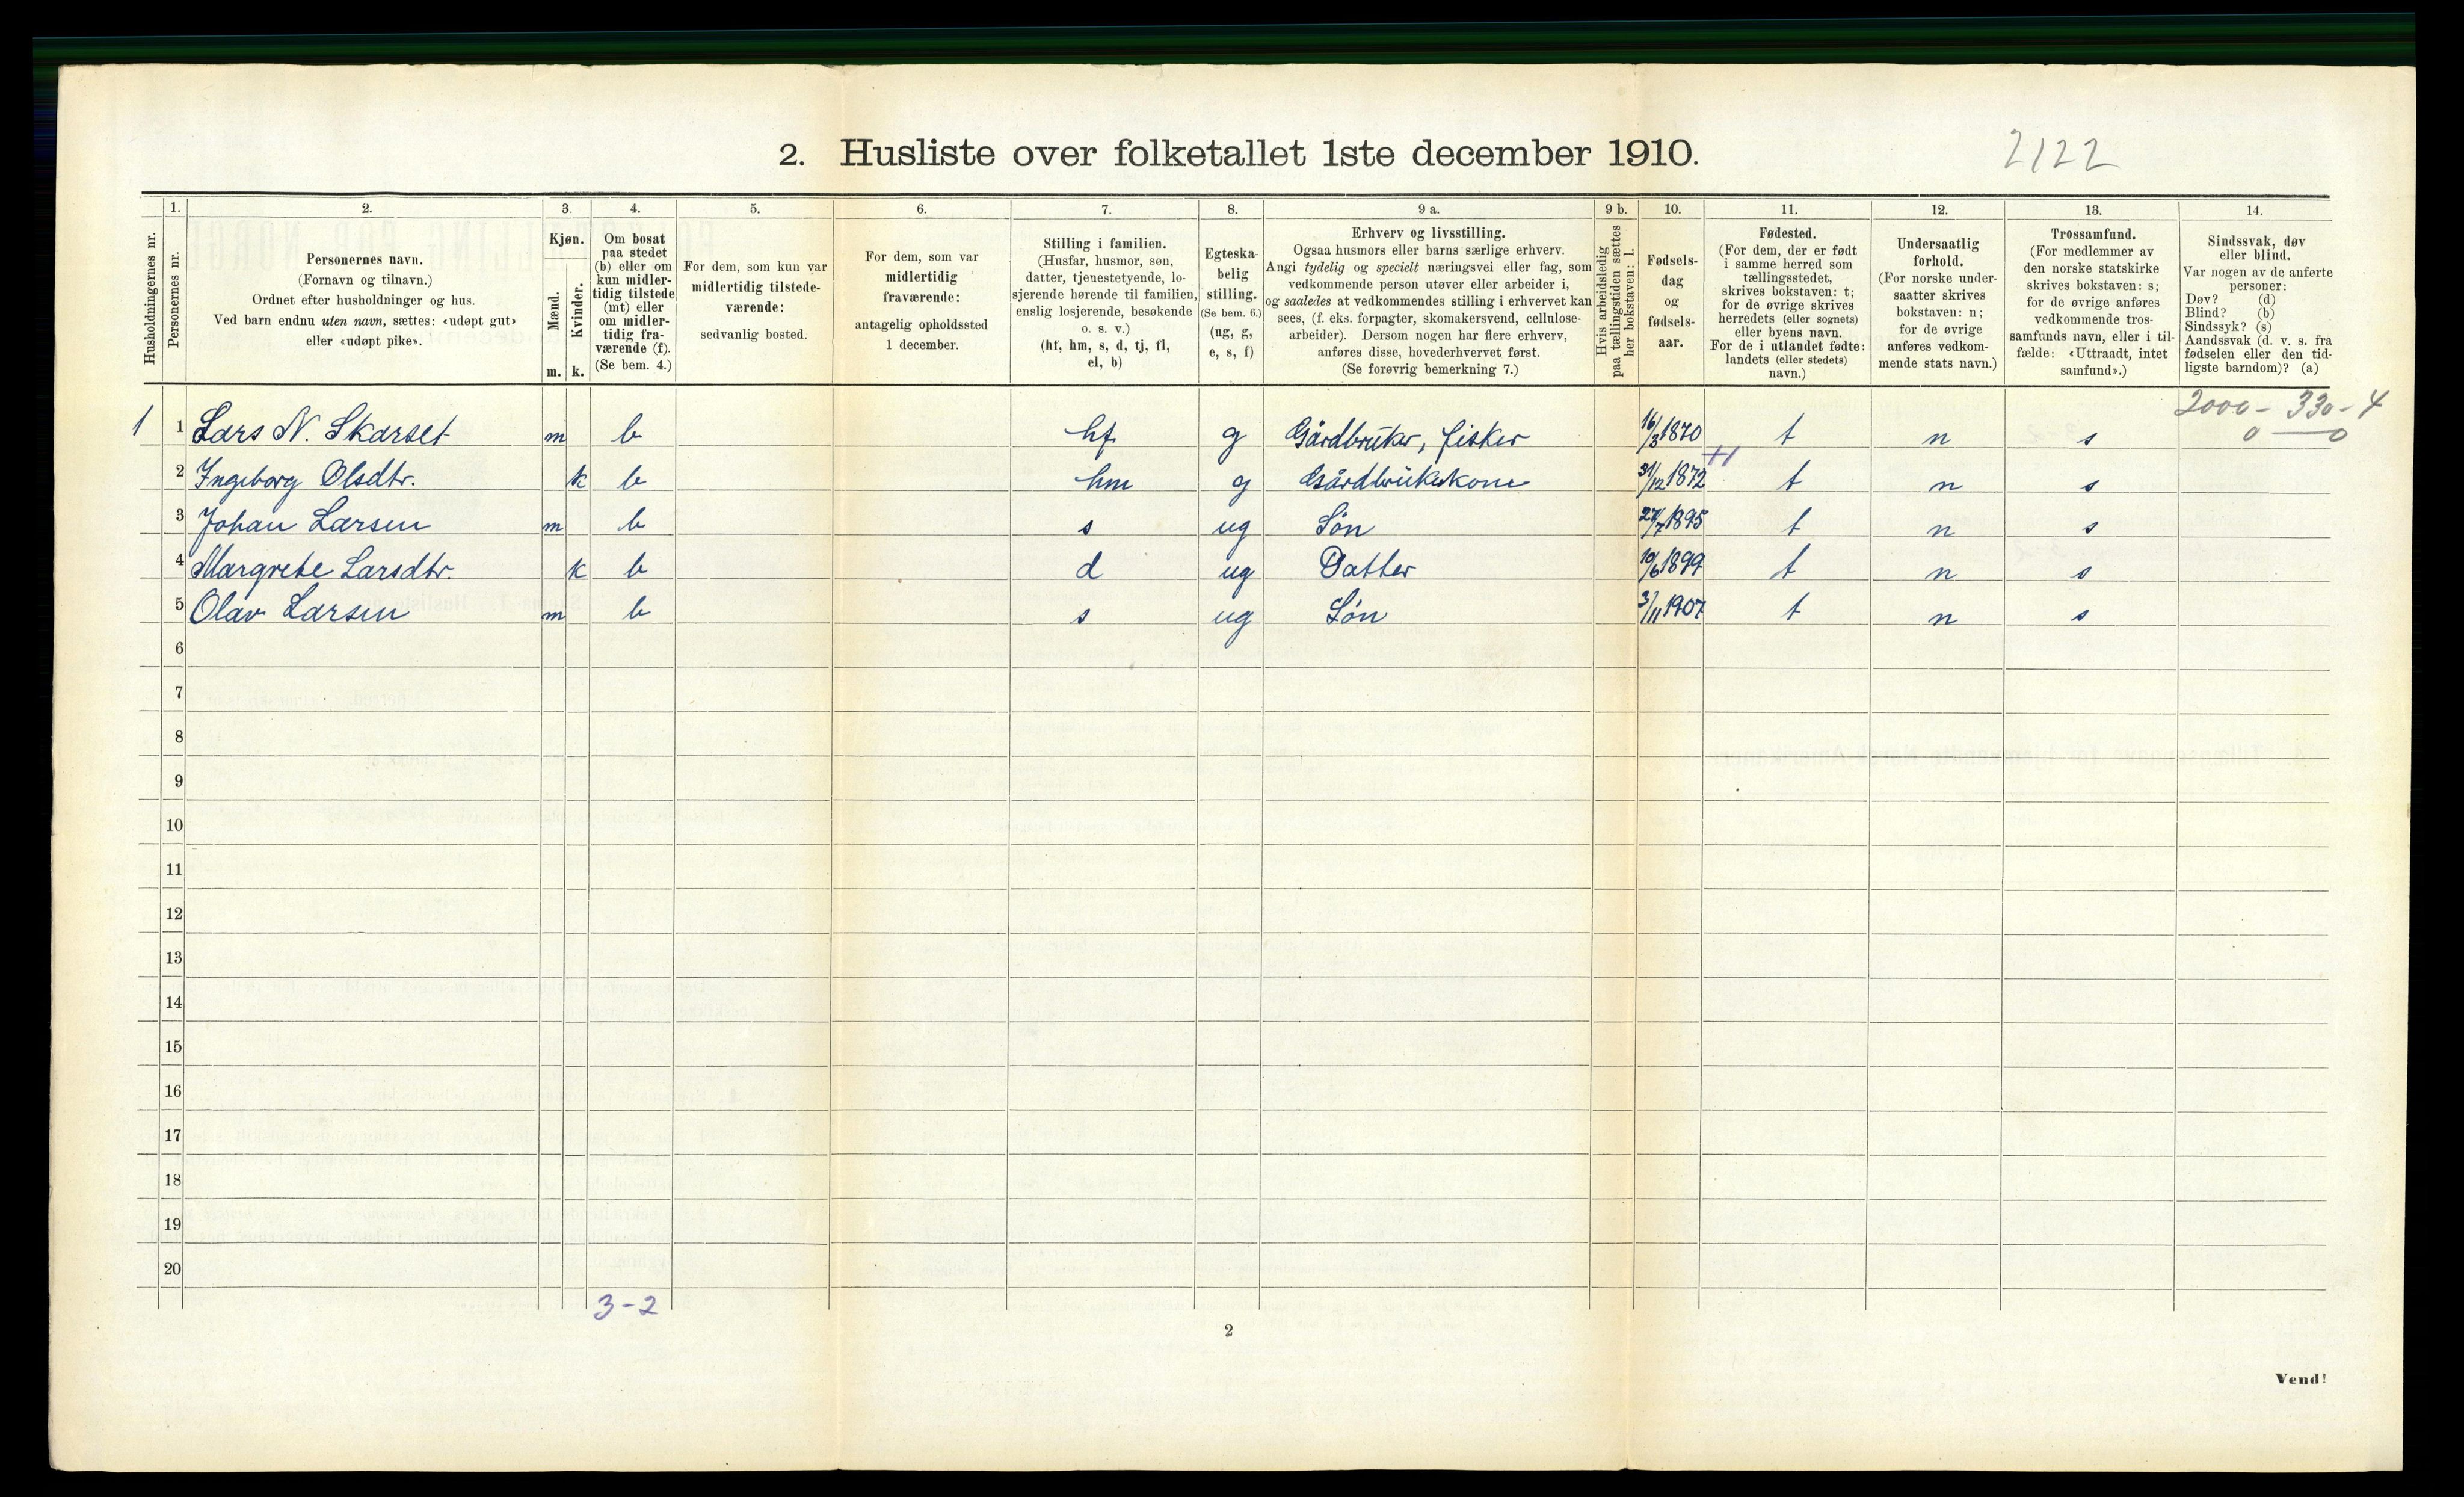 2. Husliste over folketallet 1ste december 1910.
2122
1.
2.
3.
4.
5.
6.
7.
8.
9 a.
9 b.
10.
11.
12.
13.
14.
Husholdningernes nr.
Personernes nr.
Personernes navn.
(Fornavn og tilnavn.)
Ordnet efter husholdninger og hus.
Ved barn endnu uten navn, sættes: «udøpt gut»
eller «udøpt pike».
Kjøn.
Mænd.
Kvinder.
m. k.
Om bosat
paa stedet
(b) eller om
kun midler-
tidig tilstede
(mt) eller
om midler-
tidig fra-
værende (f).
(Se bem. 4.)
For dem, som kun var
midlertidig tilstede-
værende:
sedvanlig bosted.
For dem, som var
midlertidig
fraværende:
antagelig opholdssted
1 december.
Stilling i familien.
(Husfar, husmor, søn,
datter, tjenestetyende, lo-
sjerende hørende til familien,
enslig losjerende, besøkende
o. s. v.)
(hf, hm, s, d, tj, fl,
el, b)
Egteska-
belig
stilling.
(Se bem. 6.)
(ug, g,
e, s, f)
Erhverv og livsstilling.
Ogsaa husmors eller barns særlige erhverv.
Angi tydelig og specielt næringsvei eller fag, som
vedkommende person utøver eller arbeider i,
og saaledes at vedkommendes stilling i erhvervet kan
sees, (f. eks. forpagter, skomakersvend, cellulose-
arbeider). Dersom nogen har flere erhverv,
anføres disse, hovederhvervet først.
(Se forøvrig bemerkning 7.)
Hvis arbeidsledig
paa tællingstiden sættes
her bokstaven: l.
Fødsels-
dag
og
fødsels-
aar.
Fødested.
(For dem, der er født
i samme herred som
tællingsstedet,
skrives bokstaven: t;
for de øvrige skrives
herredets (eller sognets)
eller byens navn.
For de i utlandet fødte:
landets (eller stedets)
navn.)
Undersaatlig
forhold.
(For norske under-
saatter skrives
bokstaven: n;
for de øvrige
anføres vedkom-
mende stats navn.)
Trossamfund.
(For medlemmer av
den norske statskirke
skrives bokstaven: s;
for de øvrige anføres
vedkommende tros-
samfunds navn, eller i til-
fælde: «Uttraadt, intet
samfund».)
Sindssvak, døv
eller blind.
Var nogen av de anførte
personer:
Døv? (d)
Blind? (b)
Sindssyk? (s)
Aandssvak (d. v. s. fra
fødselen eller den tid-
ligste barndom)? (a)
2000 - 330 - 4
0 — 0
1 1 Lars N. Skarset m b hf g Gårdbruker, fisker 16/3 1870 t n s
2 Ingeborg Olsdtr. k b hm g Gårdbrukerkone 31/12 1872 t n s
3 Johan Larsen m b s ug Søn 27/7 1895 t n s
4 Margrete Larsdtr. k b d ug Datter 10/6 1899 t n s
5 Olav Larsen m b s ug Søn 3/11 1907 t n s
6
7
8
9
10
11
12
13
14
15
16
17
18
19
20
3 - 2
2
Vend!